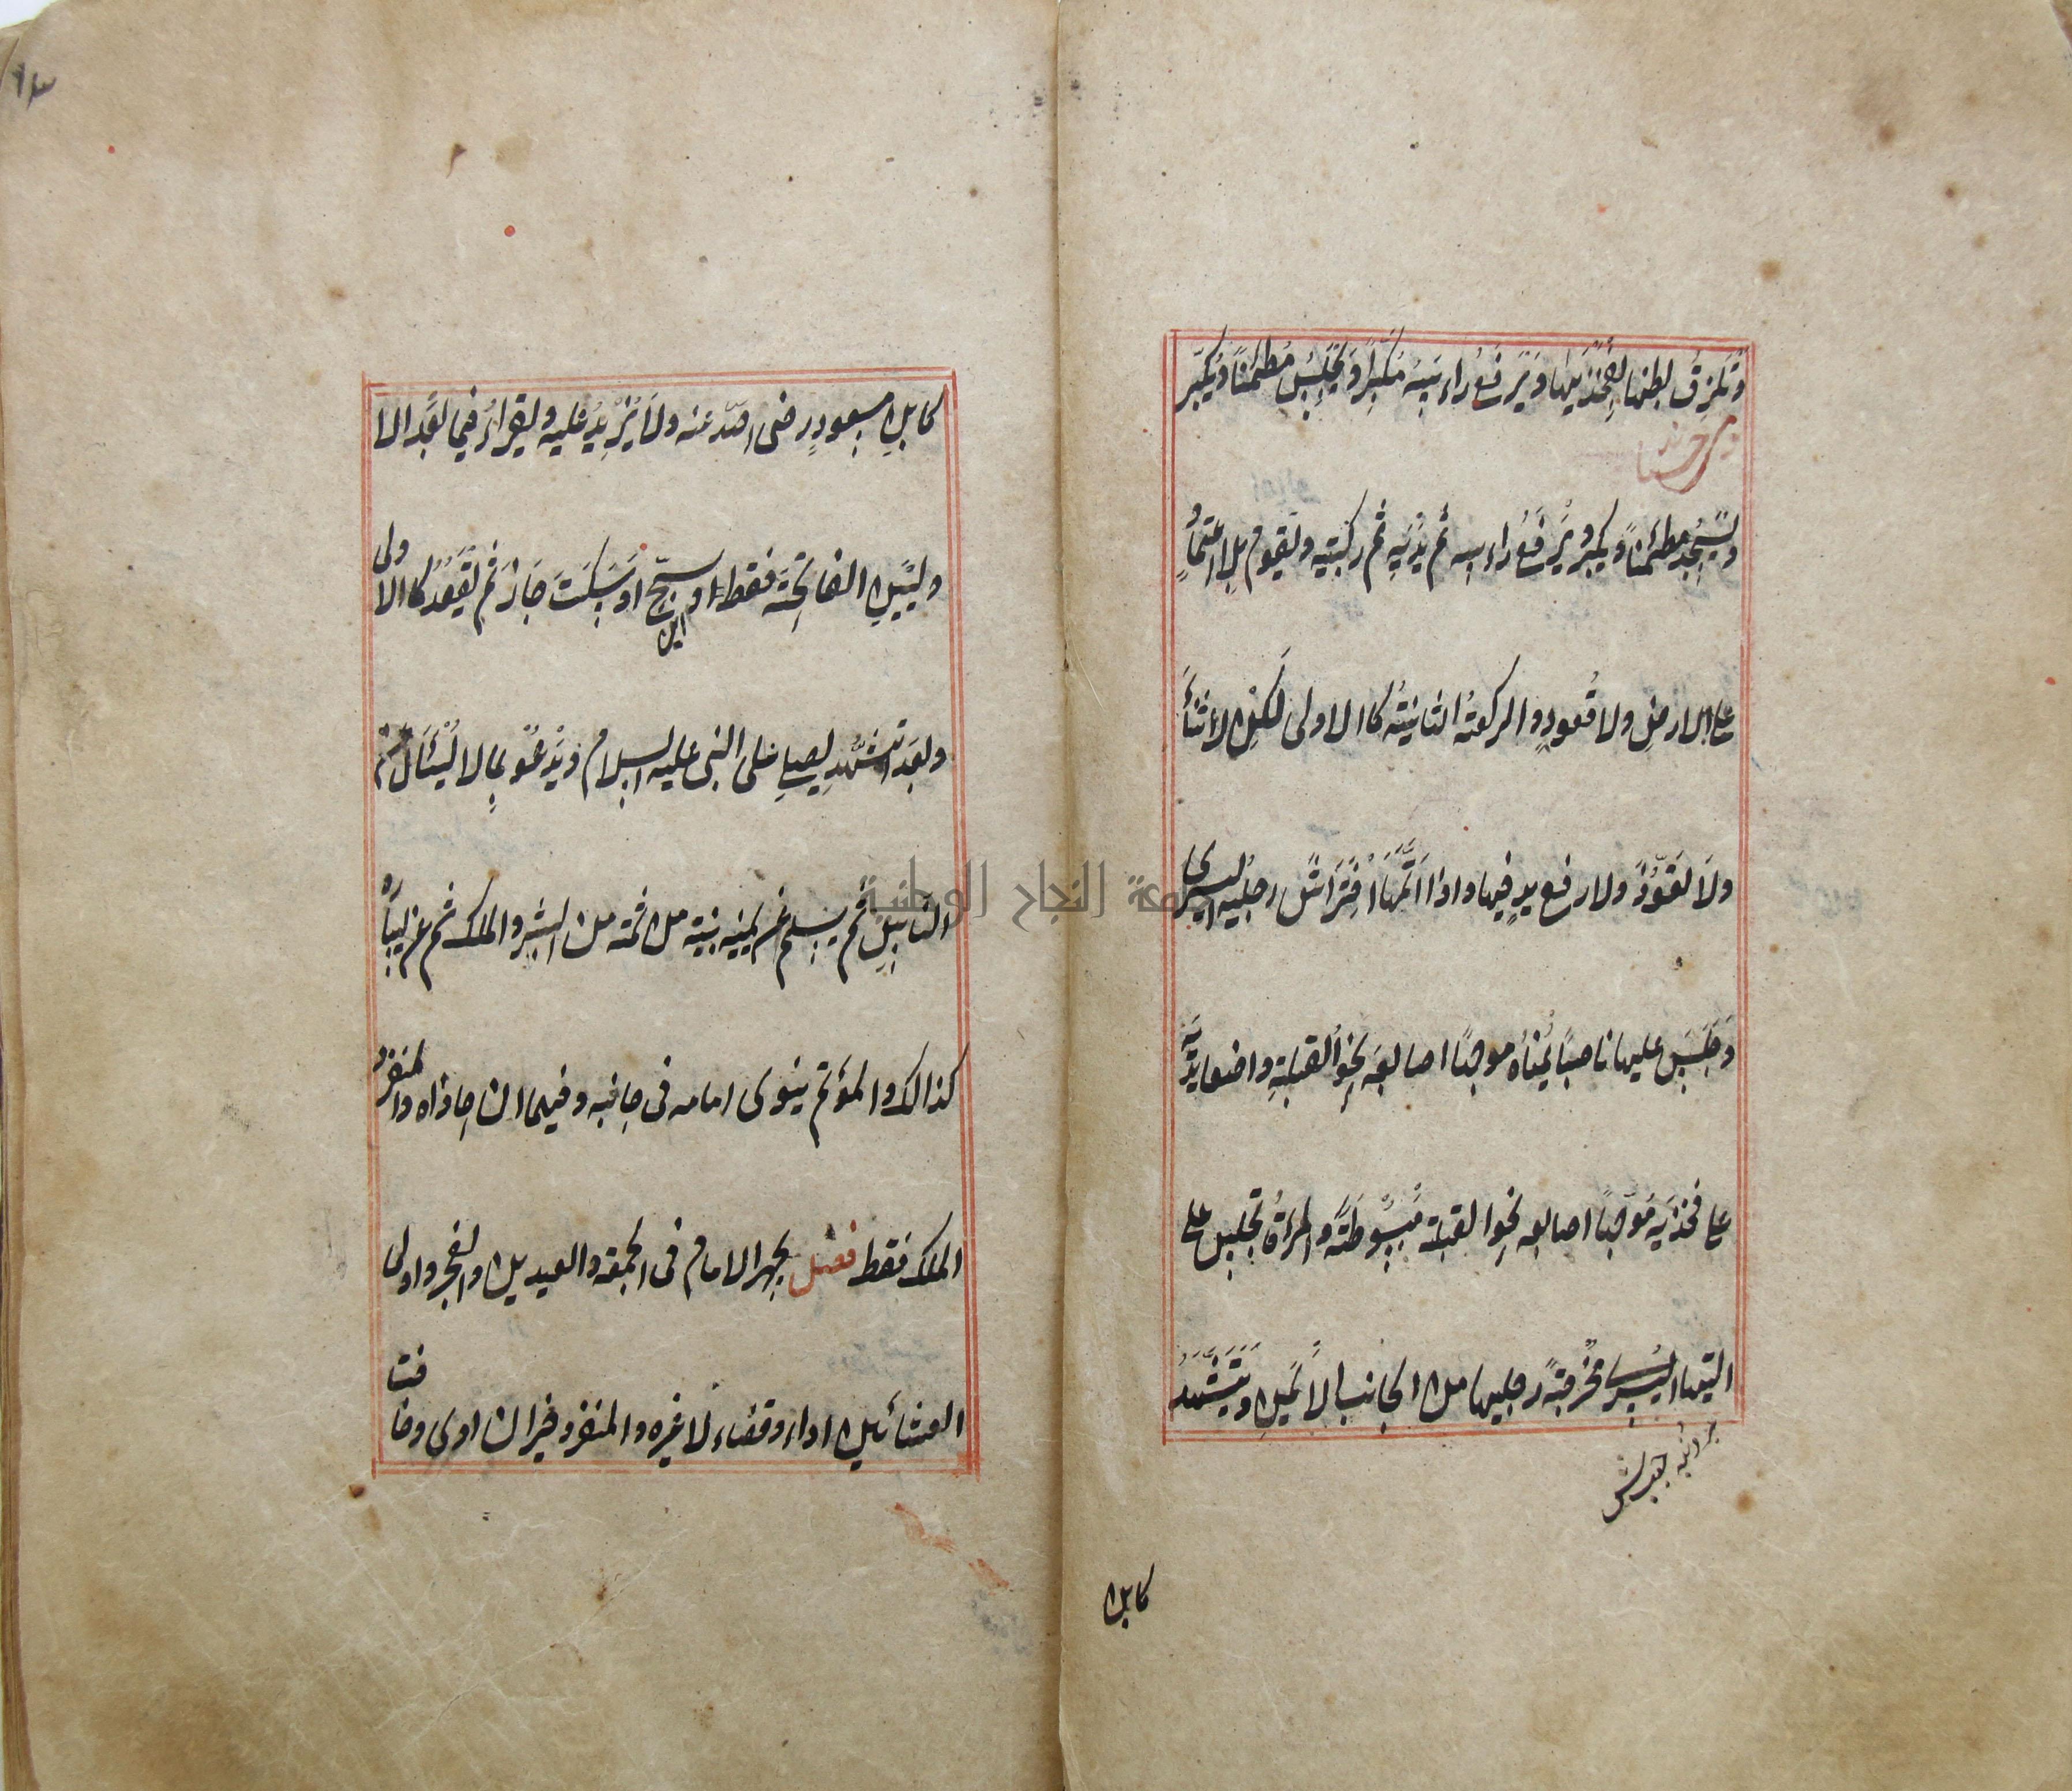 وَتُلزِقُ بطنها بفخذيها وَيَرفَعُ راءسَهُ مُكَبِّراً وَيَجلِسُ مُطمَئِنّاً وَيُكَبِّر
وَيَسجُد مطمئناً ويكبر ويَرفَعُ راءسه ثم يديه ثم ركبتيه ويقوم بلا اعتماد
على الارض ولا قُعودٍ والركعة الثانية كاالاولى لكن لا ثناءَ
ولا تَعَوُّذَ ولا رفع يدٍ فيها واذا اتمّها افتَرَاش رجليه اليسرى
وَجَلَسَ عليها ناصباً يُمناهُ موجهاً اصابعه نحو القبلةِ واضعا يديه
على فخذيه مُوَجِّهاً اصابعه نحو القبلة مبسُوطَةً والمراةُ تجلس على
اليتها اليسرى مخرجةً رجليها من الجانب الايمنِ وَيَتَشَهَّدُ
كابن
١٣
كابنِ مسعودٍ رضى الله عنه ولَا يَزِيدُ عليه ويقراءُ فيما بَعدَ الاوليين
الفاتحة فقط او سبّح او سَكَتَ جَازَ ثم يَقعُدُ كاالاولى
وبعد تشهّدٍ يصلى على النبى عليه السلام ويَدعُو بما لا يُسئَالُ من
الناسِ ثم يسلم عن يمينه بنية من ثمه من البشر والملك ثم عن يساره
كذالك والمؤتم ينوى امامه فى جانبه وفيهما ان حاذاه والمنفرد
الملك فقط فصل يجهر الامام فى الجمعة والعيدين والفجر واولى
العشائين اداء وقضاء لا غيره والمنفرد خير ان ادى وخافت
جامعة النجاح الوطنية